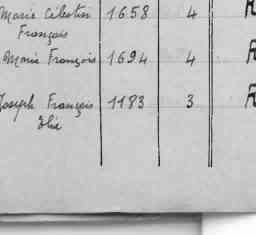 Marie Célestin 1658 4
François
Marie François 1694 4
Joseph François 1183 3
Elie